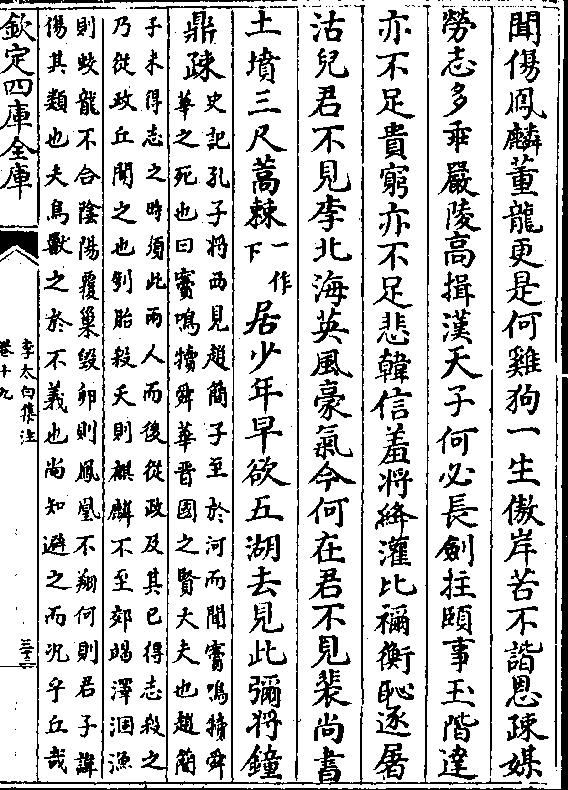 聞傷鳳麟董龍更是何雞狗一生傲岸苦不諧恩疎媒
勞志多乖嚴陵高揖漢天子何必長劍拄頤事玉階達
亦不足貴窮亦不足悲韓信羞將絳灌比禰衡恥逐屠
沽兒君不見李北海英風豪氣今何在君不見裴尚書
土墳三尺蒿棘一作下居少年早欲五湖去見此彌將鐘
鼎疎史記孔子將西見趙簡子至於河而聞竇鳴犢舜
華之死也曰竇鳴犢舜華晉國之賢大夫也趙簡
子未得志之時須此兩人而後從政及其已得志殺之
乃從政丘聞之也刳胎殺夭則麒麟不至郊竭澤涸漁
則蛟龍不合陰陽覆巢毀卵則鳳凰不翔何則君子諱
傷其類也夫鳥獸之於不義也尚知避之而况乎丘哉
欽定四庫全庫
李太白集注
卷十九
三十三